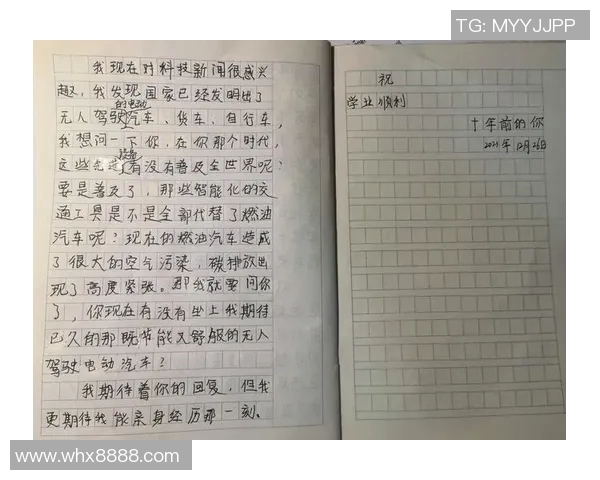 TG: MYYJJPP
我现在对科技新闻很感兴
趣，我发现国家已经发明出了
的电动
无人驾驶汽车、货车、自行车，
我想问一下你，在你那个时代，
这些有没有普及全世界呢？
要是普及了，那些智能化的交
通工具是不是全部代替了燃油
汽车呢？现在的燃油汽车造成
了很大的空气污染，碳排放出
现了高度紧张。那我就要问你
了，你现在有没有坐上我期待
已久的那既节能又舒服的无人
驾驶电动汽车？
我期待着你的回复，但我
更期待我能亲身经历那一刻。
祝
学业顺利
十年前的你
2021年12月26日
www.whx8888.com